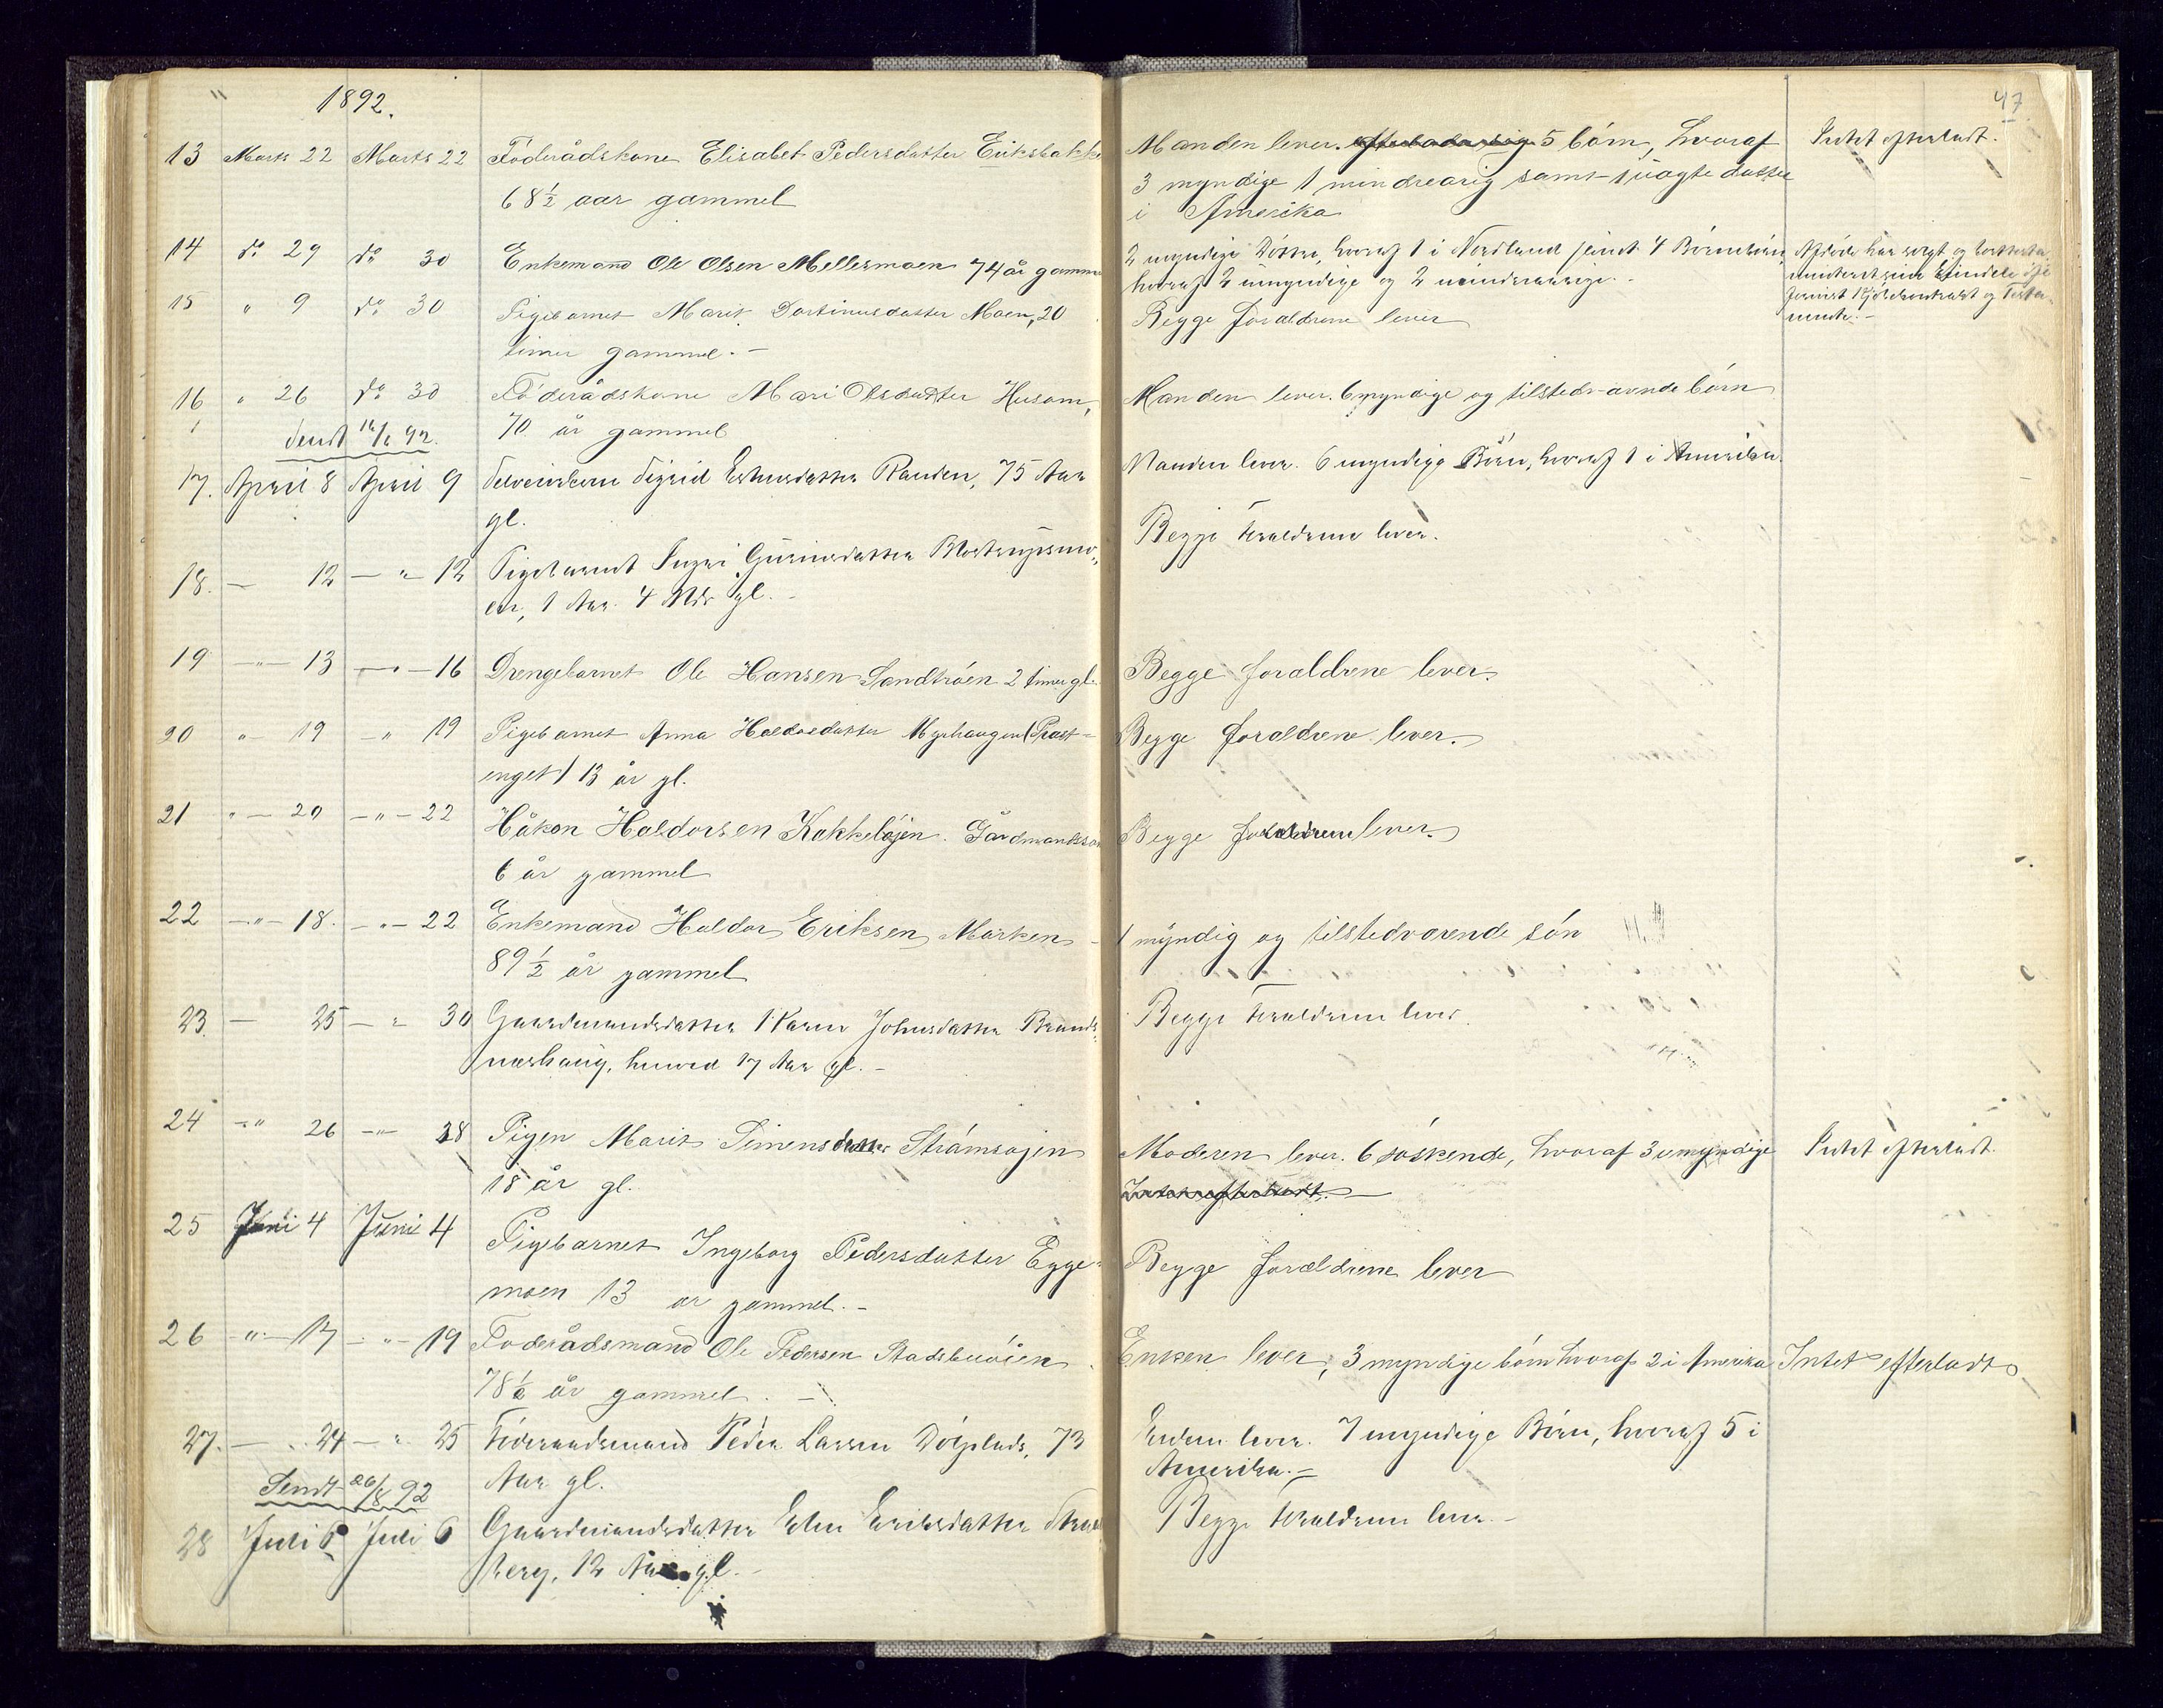 1892.
47
13 Marts 22 Marts 22 Föderådskone Elisabet Pedersdatter Eriksbakke Manden lever. 5 börn, hvoraf Intet efterladt.
68½ aar gammel 3 myndige 1 mindreårig samt 1 uægte datter
i Amerika
14 do 29 do 30 Enkemand Ole Olsen Mellesmoen 74 år gammel 2 myndige Döttre, hvoraf 1 i Nordland samt 4 Börnebörn, Afdöde har solgt og
hvoraf 2 umyndige og 2 mindreaarige.
15 " 9 do 30 Pigebarnet Marit Dortinusdatter Moen, 20 Begge forældrene lever
timer gammel. -
16 " 26 do 30 Föderådskone Mari Olsdatter Husom, Manden lever. 6 myndige og tilstedværende börn
70 år gammel
Sendt 92.
17. April 8 April 9 Selveierkone Sigrid Estensdatter Randen, 75 Aar Manden lever. 6 myndige Börn, hvoraf 1 i Amerika.
gl.
18. — 12 — " 12 Pigebarnet Ingri Gurinusdatter Begge Forældrene lever.
en, 1 Aar 4 Mdr gl. -
19 — " — 13 — " — 16 Drengebarnet Ole Hansen Sandtröen 2 timer gl. Begge forældrene lever.
20 " — 19 — " 19 Pigebarnet Anna Haldosdatter Myrhaugen (Præst- Begge forældrene lever.
enget) 13 år gl.
21 " — 20 — " — 22 Håkon Haldorsen Kokkelöjen. Gårdmandssön Begge forældrene lever.
6 år gammel
22 — " — 18. — " — 22 Enkemand Haldor Eriksen Marken 1 myndig og tilstedværende sön
89½ år gammel
23. — 25 — " 30 Gaardmandsdatter Karen Johnsdatter Brands- Begge Forældrene lever.
neshaug, henved 17 Aar gl. -
24 — " 26 — " 28 Pigen Marit Simensdatter Strömsöjen Moderen lever. 6 söskende, hvoraf 3 umyndige Intet efterladt.
18 år gl.
25 Juni 4 Juni 4 Pigebarnet Ingeborg Pedersdatter Egge- Begge forældrene lever
moen 13 år gammel. -
26 " — 17 — " — 19 Föderådsmand Ole Pedersen Stadsbuöien Enken lever, 3 myndige börn hvoraf 2 i Amerika Intet efterladt
78½ år gammel. -
27. — " 24 — " 25 Föderaadsmand Peder Larsen Dölplads, 73 Enken lever. 7 myndige Börn, hvoraf 5 i
Aar gl. Amerika. -
Sendt 26/8 92
28 Juli 6 Juli 6 Gaardmandsdatter Eriksdatter Begge Forældrene lever. -
berg, 12 Aar gl. -